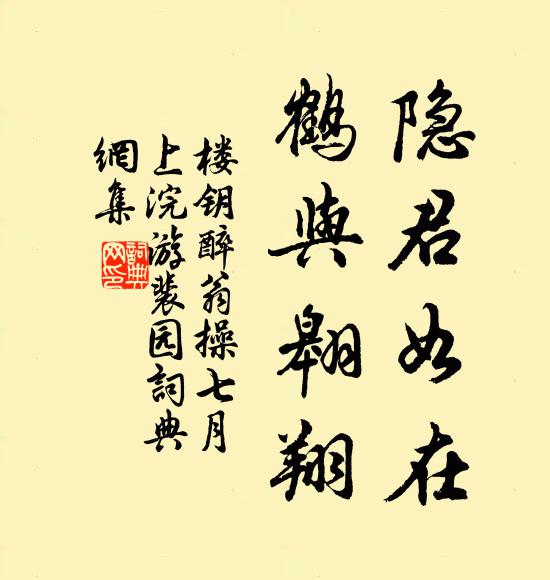 隐君如在
鹤与翱翔
楼钥醉翁操七月
上浣游裴园詞典
網集
詞典
网印